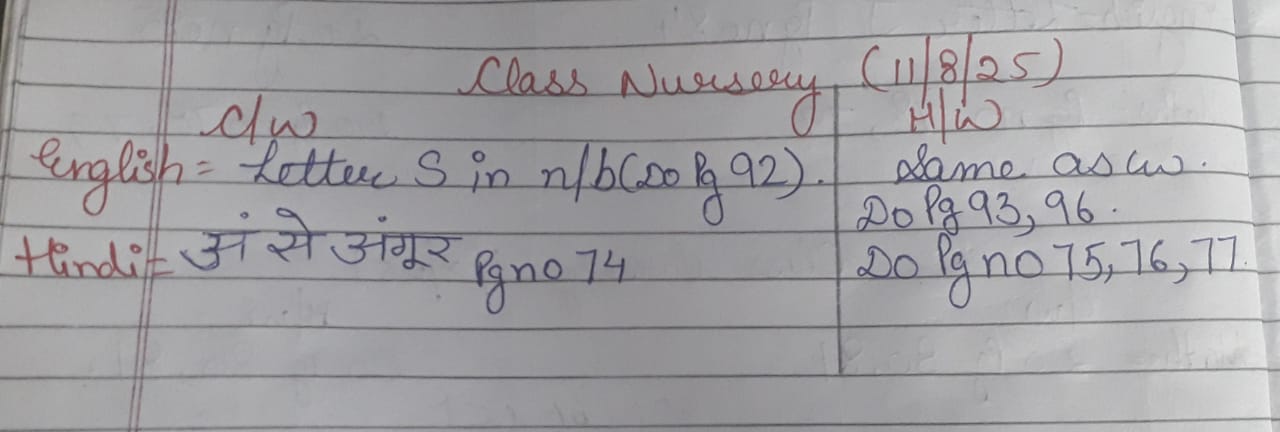 Class Nursery (11/8/25)
C/W H/W
English = Letter S in n/b (Do Pg 92). Same as cw.
Do Pg 93, 96.
Hindi = अं से अंगूर Pg no 74 Do Pg no 75, 76, 77.